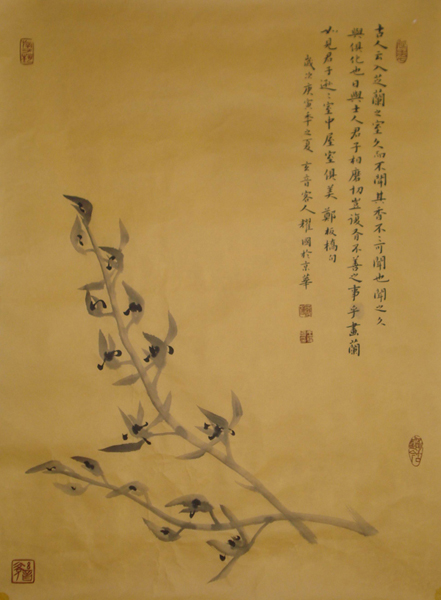 古人云入芝蘭之室久而不聞其香不亦聞也聞之久
與俱化也日與士人君子相磨切豈復有不善之事乎畫蘭
如見君子逊〻室中屋室俱美 鄭板橋句
歲次庚寅年之夏 玄音客人耀國於京華